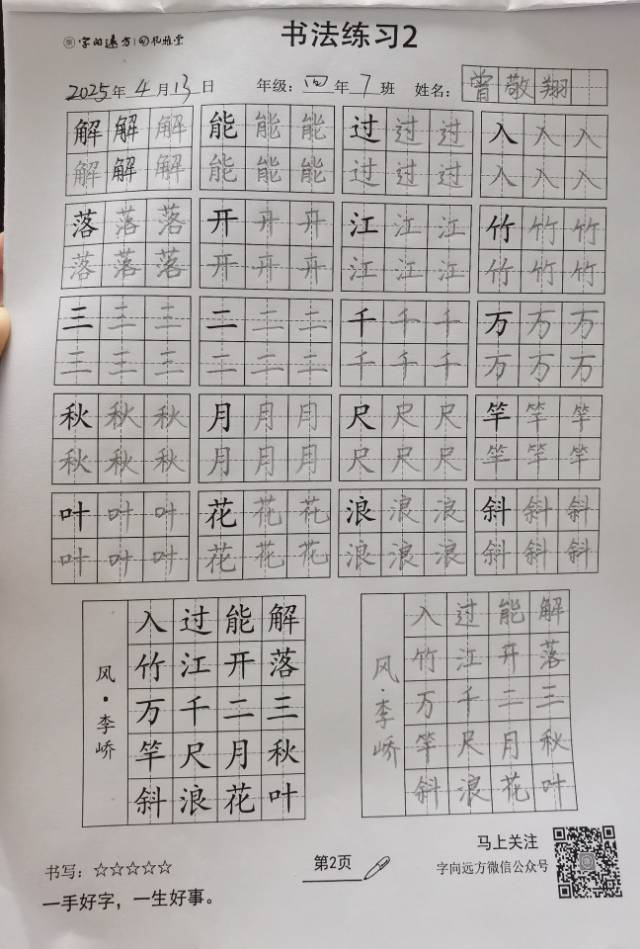 字向远方 札雅堂 书法练习2
2025年4月13日 年级:四年7班 姓名:曾敬翔
解解解 能能能 过过过 入入入
解解解 能能能 过过过 入入入
落落落 开开开 江江江 竹竹竹
落落落 开开开 江江江 竹竹竹
三三三 二二二 千千千 万万万
三三三 二二二 千千千 万万万
秋秋秋 月月月 尺尺尺 竿竿竿
秋秋秋 月月月 尺尺尺 竿竿竿
叶叶叶 花花花 浪浪浪 斜斜斜
叶叶叶 花花花 浪浪浪 斜斜斜
解落三秋叶
能开二月花
过江千尺浪
入竹万竿斜
风·李峤
解落三秋叶
能开二月花
过江千尺浪
入竹万竿斜
风·李峤
书写:☆☆☆☆☆
一手好字,一生好事。
第2页
马上关注
字向远方微信公众号